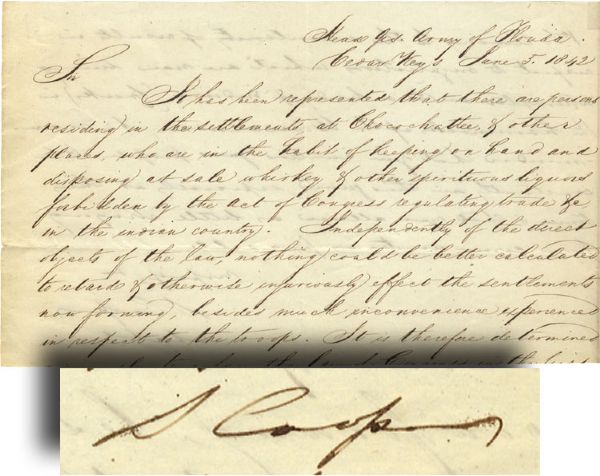 Head Qrs. Army of Florida
Cedar Key's June 5. 1842
Sir
It has been represented that there are persons
residing in the settlements at Chocochattee, & other
places, who are in the habit of keeping on hand and
disposing at sale whiskey & other spirituous liquors
forbidden by the act of Congress regulating trade &c
in the indian country. Independently of the direct
objects of the law, nothing could be better calculated
to retard & otherwise injuriously effect the settlements
now forming, besides much inconvenience experienced
in respect to the troops. It is therefore determined
S Cooper